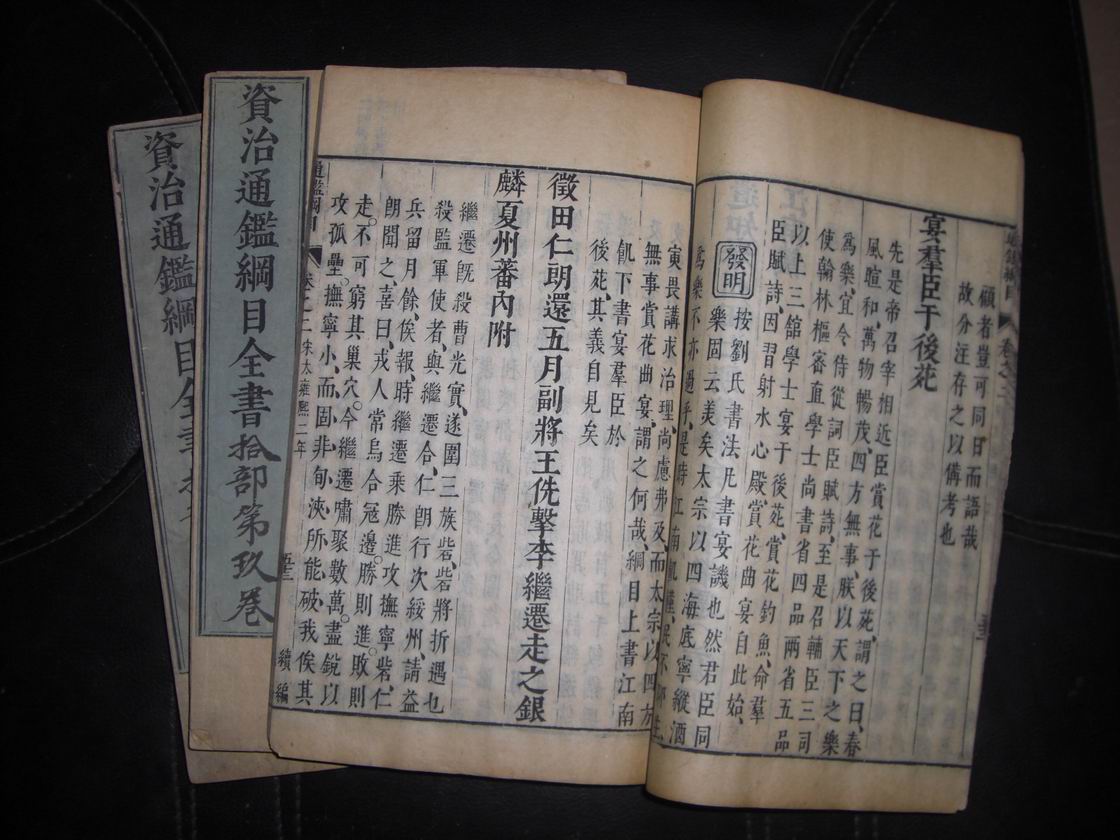 資治通鑑綱目全書
資治通鑑綱目全書拾部第玖卷
顧者豈可同日而語哉
故分注存之以備考也
宴羣臣于後苑
先是帝召宰相近臣賞花于後苑、謂之曰、春
風暄和、萬物暢茂、四方無事、朕以天下之樂
爲樂、宜令侍從詞臣賦詩、至是召輔臣三司
使翰林樞密直學士尚書省四品兩省五品
以上三館學士宴于後苑、賞花釣魚、命羣
臣賦詩、因習射水心殿、賞花曲宴自此始、
發明 按劉氏書法凡書宴譏也然君臣同
樂固云美矣太宗以四海底寧縱酒
爲樂不亦過乎、是時江南飢
寅畏講求治理、尚慮弗及、而太宗以四方
無事賞花曲宴、謂之何哉、綱目上書江南
飢下書宴羣臣於
後苑、其義自見矣
徵田仁朗還五月副將王侁擊李繼遷走之銀
麟夏州蕃內附
繼遷旣殺曹光實、遂圍三族砦、砦將折遇也
殺監軍使者、與繼遷合、仁朗行次綏州、請益
兵留月餘、俟報、時繼遷乘勝進攻撫寧砦、仁
朗聞之、喜曰、戎人常烏合寇邊。勝則進。敗則
走。不可窮其巢穴。今繼遷嘯聚數萬。盡銳以
攻孤壘。撫寧小、而、固、非、旬、浹、所、能、破、我俟其
通鑑綱目
卷之二 宋太 雍熙二年
續編